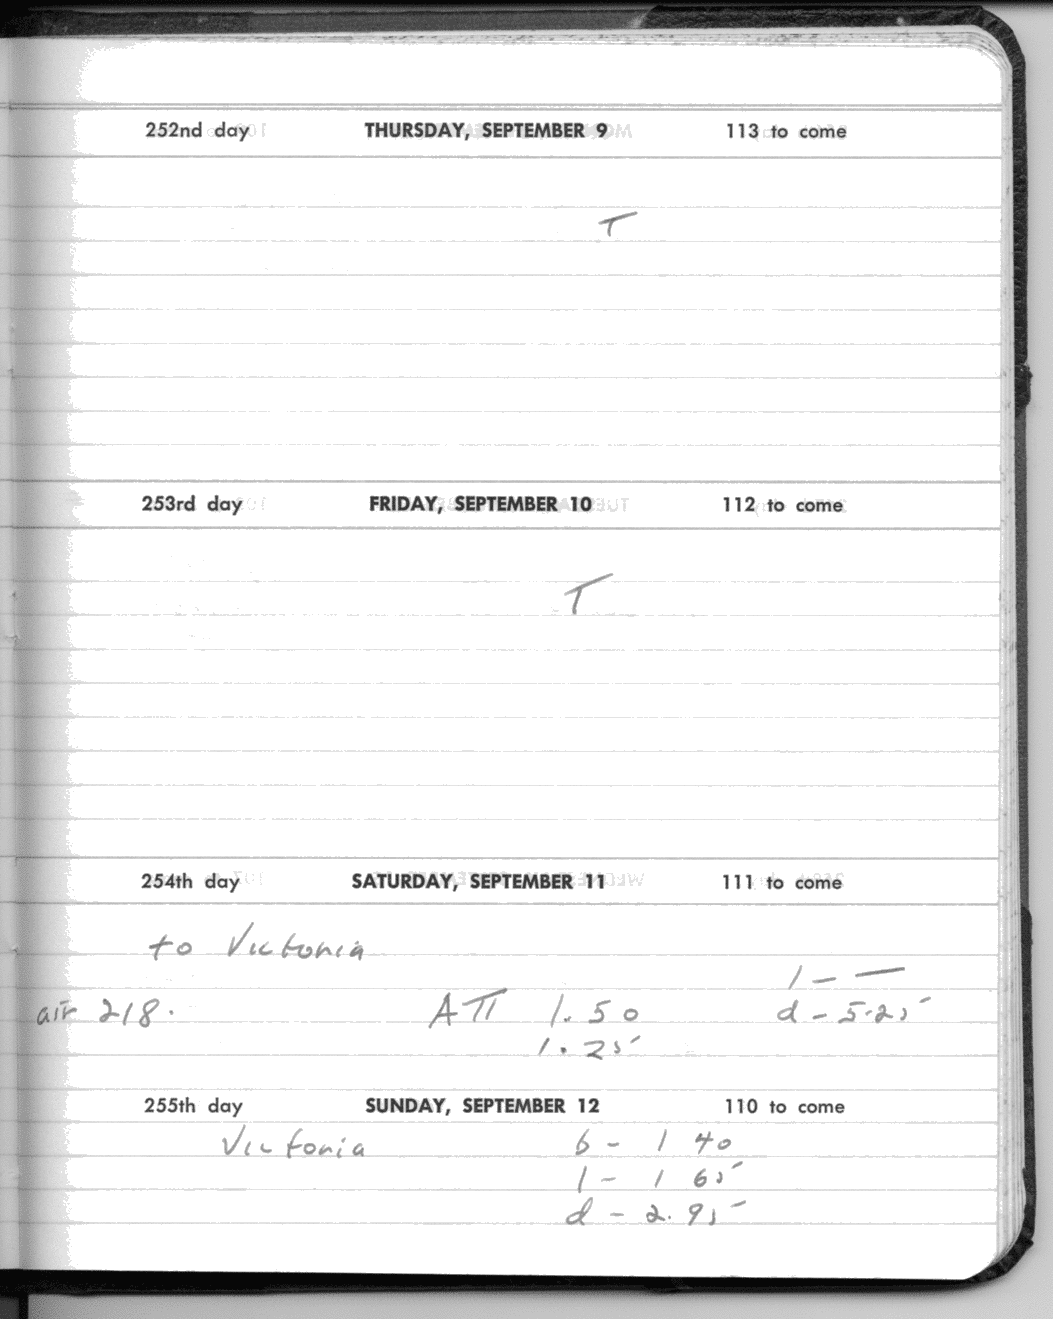 252nd day THURSDAY, SEPTEMBER 9 113 to come
T
253rd day FRIDAY, SEPTEMBER 10 112 to come
T
254th day SATURDAY, SEPTEMBER 11 111 to come
to Victoria
l - —
air 218. 1.50 d - 5.25
1.25
255th day SUNDAY, SEPTEMBER 12 110 to come
Victoria b - 1 40
l - 1 65
d - 2.95